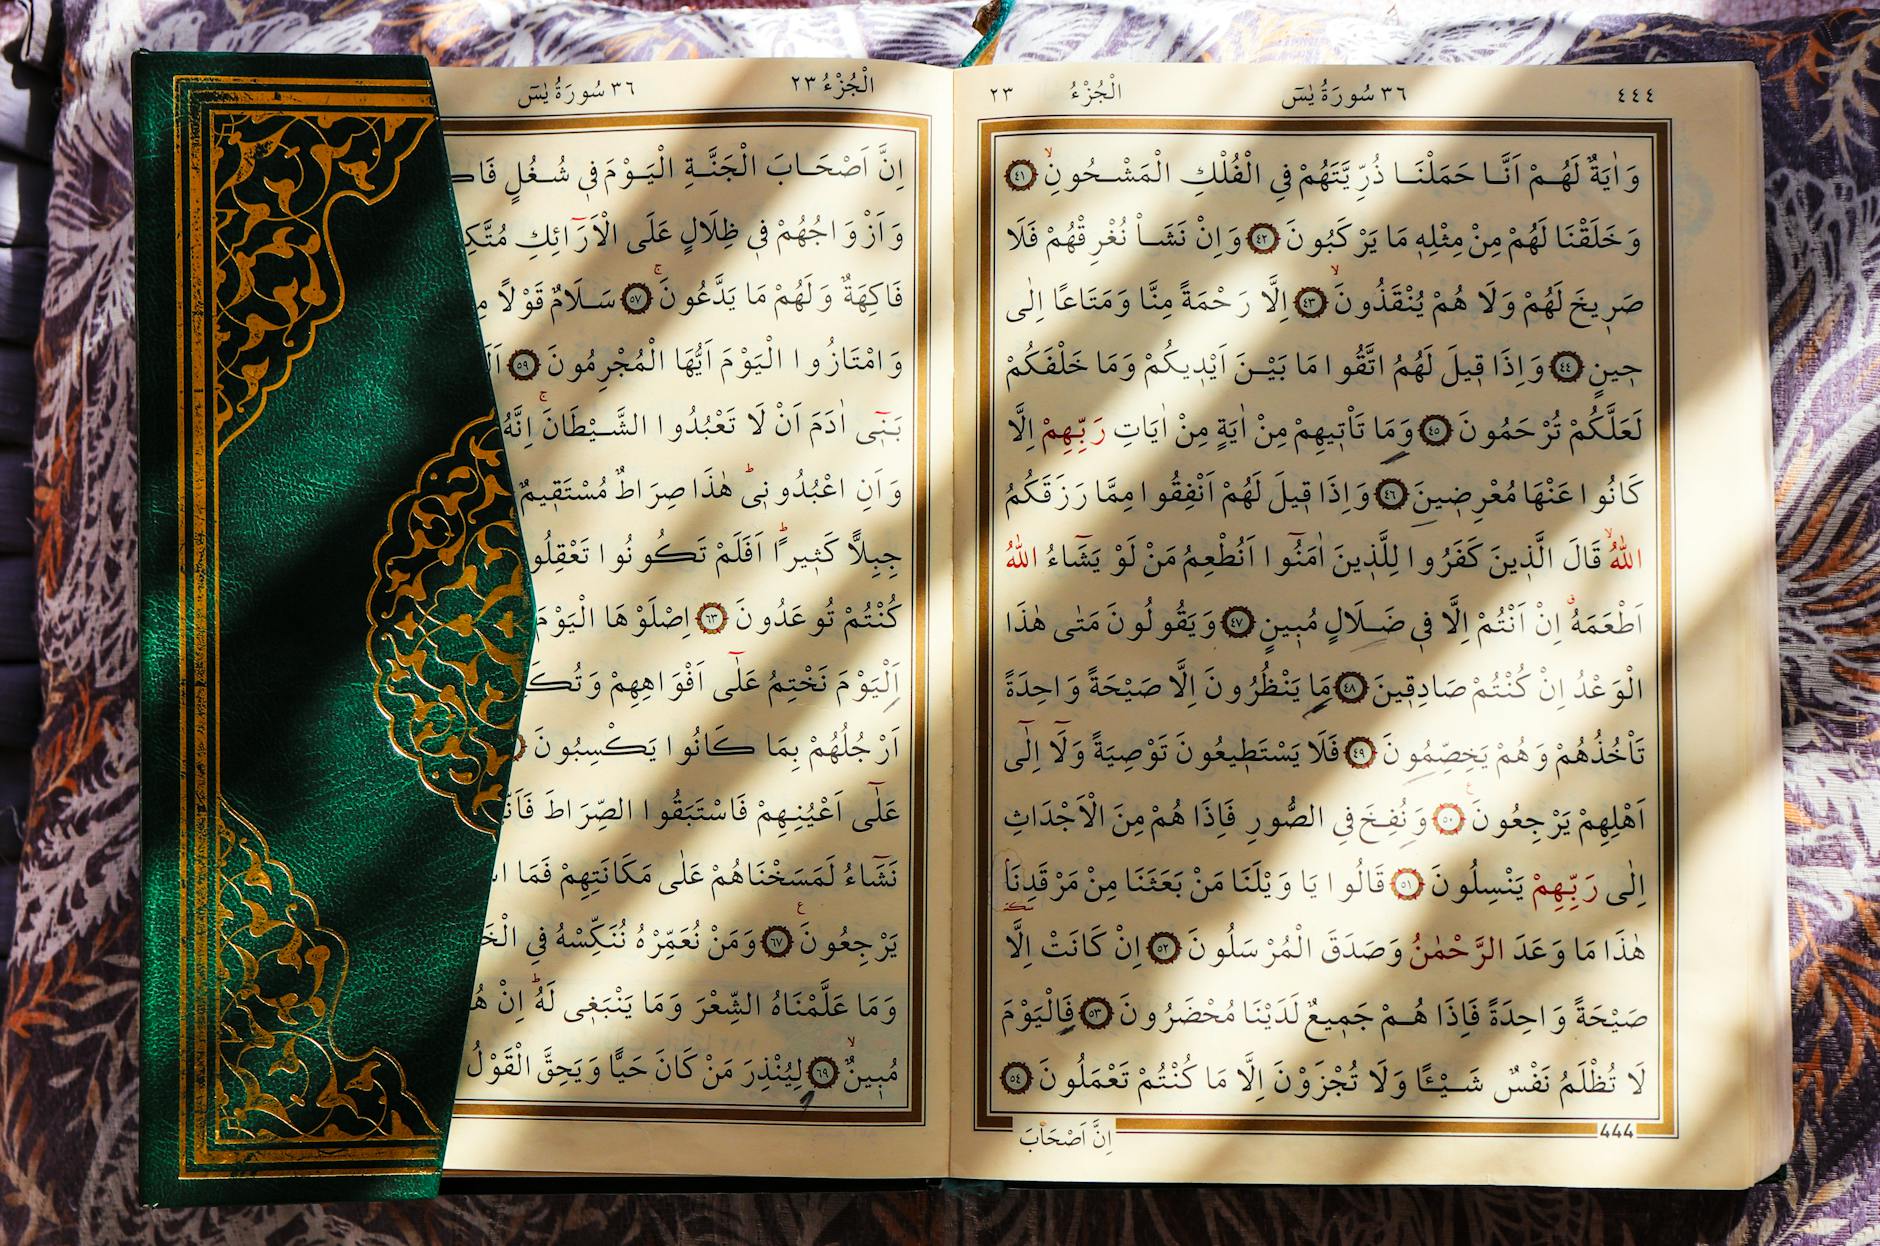 ٤٤٤ ٣٦ سُورَةُ يٰسٓ الْجُزْءُ ٢٣
وَاٰيَةٌ لَهُمْ اَنَّا حَمَلْنَا ذُرِّيَّتَهُمْ فِي الْفُلْكِ الْمَشْحُونِۙ ٤١
وَخَلَقْنَا لَهُمْ مِنْ مِثْلِهٖ مَا يَرْكَبُونَ ٤٢ وَاِنْ نَشَأْ نُغْرِقْهُمْ فَلَا
صَرٖيخَ لَهُمْ وَلَا هُمْ يُنْقَذُونَۙ ٤٣ اِلَّا رَحْمَةً مِنَّا وَمَتَاعًا اِلٰى
حٖينٍ ٤٤ وَاِذَا قٖيلَ لَهُمُ اتَّقُوا مَا بَيْنَ اَيْدٖيكُمْ وَمَا خَلْفَكُمْ
لَعَلَّكُمْ تُرْحَمُونَ ٤٥ وَمَا تَأْتٖيهِمْ مِنْ اٰيَةٍ مِنْ اٰيَاتِ رَبِّهِمْ اِلَّا
كَانُوا عَنْهَا مُعْرِضٖينَ ٤٦ وَاِذَا قٖيلَ لَهُمْ اَنْفِقُوا مِمَّا رَزَقَكُمُ
اللّٰهُۙ قَالَ الَّذٖينَ كَفَرُوا لِلَّذٖينَ اٰمَنُٓوا اَنُطْعِمُ مَنْ لَوْ يَشَٓاءُ اللّٰهُ
اَطْعَمَهُۗ اِنْ اَنْتُمْ اِلَّا فٖي ضَلَالٍ مُبٖينٍ ٤٧ وَيَقُولُونَ مَتٰى هٰذَا
الْوَعْدُ اِنْ كُنْتُمْ صَادِقٖينَ ٤٨ مَا يَنْظُرُونَ اِلَّا صَيْحَةً وَاحِدَةً
تَأْخُذُهُمْ وَهُمْ يَخِصِّمُونَ ٤٩ فَلَا يَسْتَطٖيعُونَ تَوْصِيَةً وَلَٓا اِلٰٓى
اَهْلِهِمْ يَرْجِعُونَ ٥٠ وَنُفِخَ فِي الصُّورِ فَاِذَا هُمْ مِنَ الْاَجْدَاثِ
اِلٰى رَبِّهِمْ يَنْسِلُونَ ٥١ قَالُوا يَا وَيْلَنَا مَنْ بَعَثَنَا مِنْ مَرْقَدِنَا
هٰذَا مَا وَعَدَ الرَّحْمٰنُ وَصَدَقَ الْمُرْسَلُونَ ٥٢ اِنْ كَانَتْ اِلَّا
صَيْحَةً وَاحِدَةً فَاِذَا هُمْ جَمٖيعٌ لَدَيْنَا مُحْضَرُونَ ٥٣ فَالْيَوْمَ
لَا تُظْلَمُ نَفْسٌ شَيْـًٔا وَلَا تُجْزَوْنَ اِلَّا مَا كُنْتُمْ تَعْمَلُونَ ٥٤
444
اِنَّ اَصْحَابَ
الْجُزْءُ ٢٣ ٣٦ سُورَةُ يٰسٓ
اِنَّ اَصْحَابَ الْجَنَّةِ الْيَوْمَ فٖي شُغُلٍ
وَاَزْوَاجُهُمْ فٖي ظِلَالٍ عَلَى الْاَرَٓائِكِ
فَاكِهَةٌ وَلَهُمْ مَا يَدَّعُونَۚ ٥٧ سَلَامٌ قَوْلًا
وَامْتَازُوا الْيَوْمَ اَيُّهَا الْمُجْرِمُونَ ٥٩
بَنٖٓي اٰدَمَ اَنْ لَا تَعْبُدُوا الشَّيْطَانَۚ اِنَّهُ
وَاَنِ اعْبُدُونٖيۜ هٰذَا صِرَاطٌ مُسْتَقٖيمٌ
جِبِلًّا كَثٖيرًاۜ اَفَلَمْ تَكُونُوا
كُنْتُمْ تُوعَدُونَ ٦٣ اِصْلَوْهَا الْيَوْمَ
اَلْيَوْمَ نَخْتِمُ عَلٰٓى اَفْوَاهِهِمْ
اَرْجُلُهُمْ بِمَا كَانُوا يَكْسِبُونَ
عَلٰٓى اَعْيُنِهِمْ فَاسْتَبَقُوا الصِّرَاطَ
نَشَٓاءُ لَمَسَخْنَاهُمْ عَلٰى مَكَانَتِهِمْ فَمَا
يَرْجِعُونَ ٦٧ وَمَنْ نُعَمِّرْهُ نُنَكِّسْهُ فِي
وَمَا عَلَّمْنَاهُ الشِّعْرَ وَمَا يَنْبَغٖي لَهُۜ اِنْ
مُبٖينٌۙ ٦٩ لِيُنْذِرَ مَنْ كَانَ حَيًّا وَيَحِقَّ الْقَوْلُ